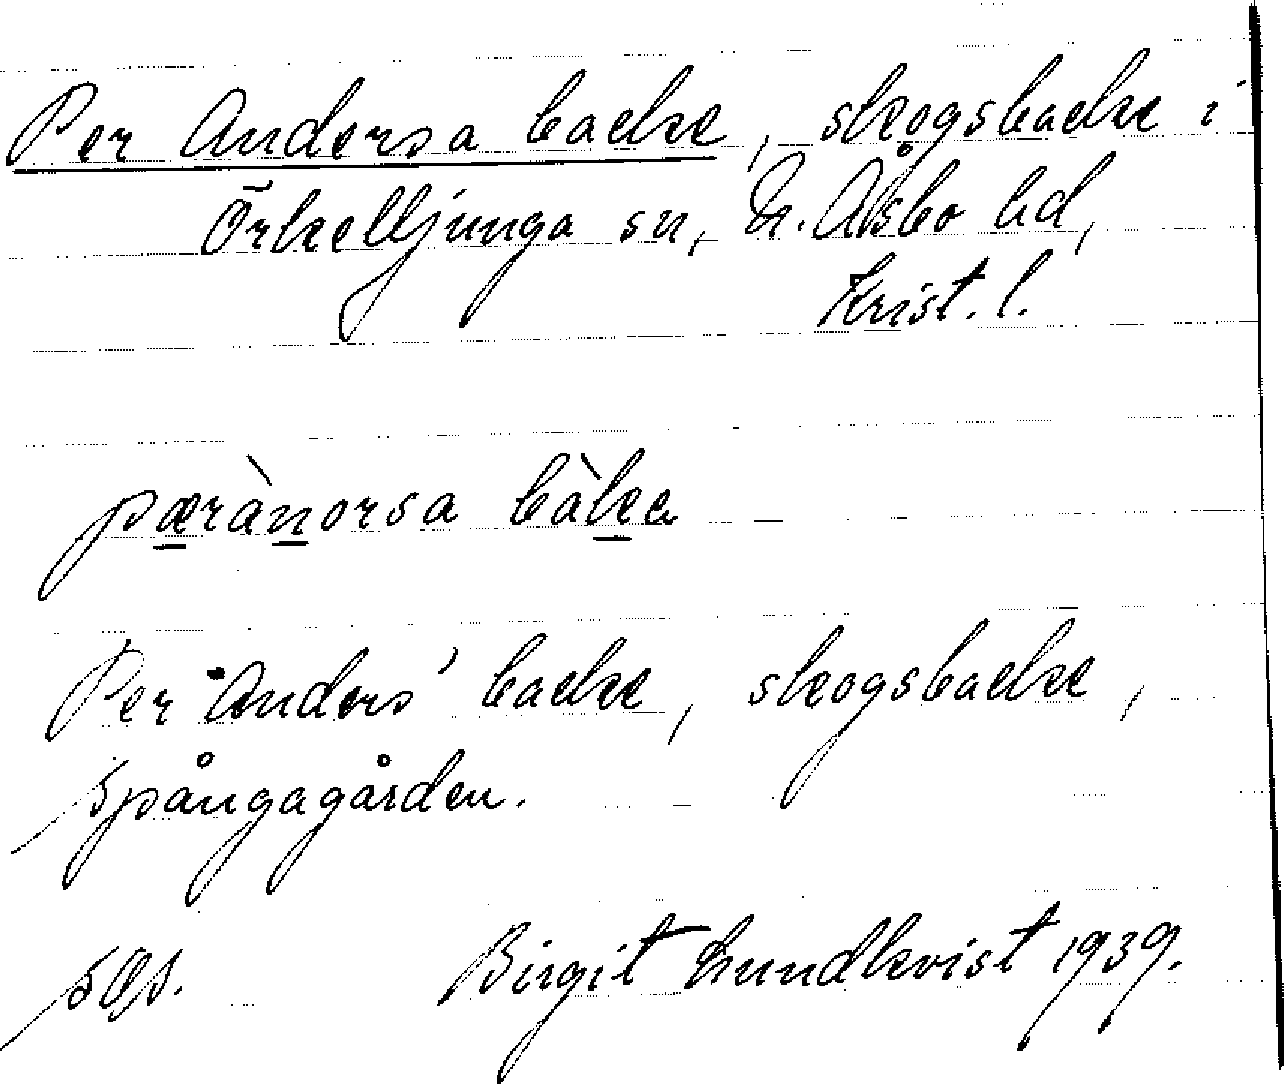 Per Andersa backe, skogsbacke i
Örkelljunga sn, N. Åsbo hd,
Krist. l.
pærànorsa bàka
Per Anders' backe, skogsbacke,
Spångagården.
SOA.
Birgit Lundkvist 1939.